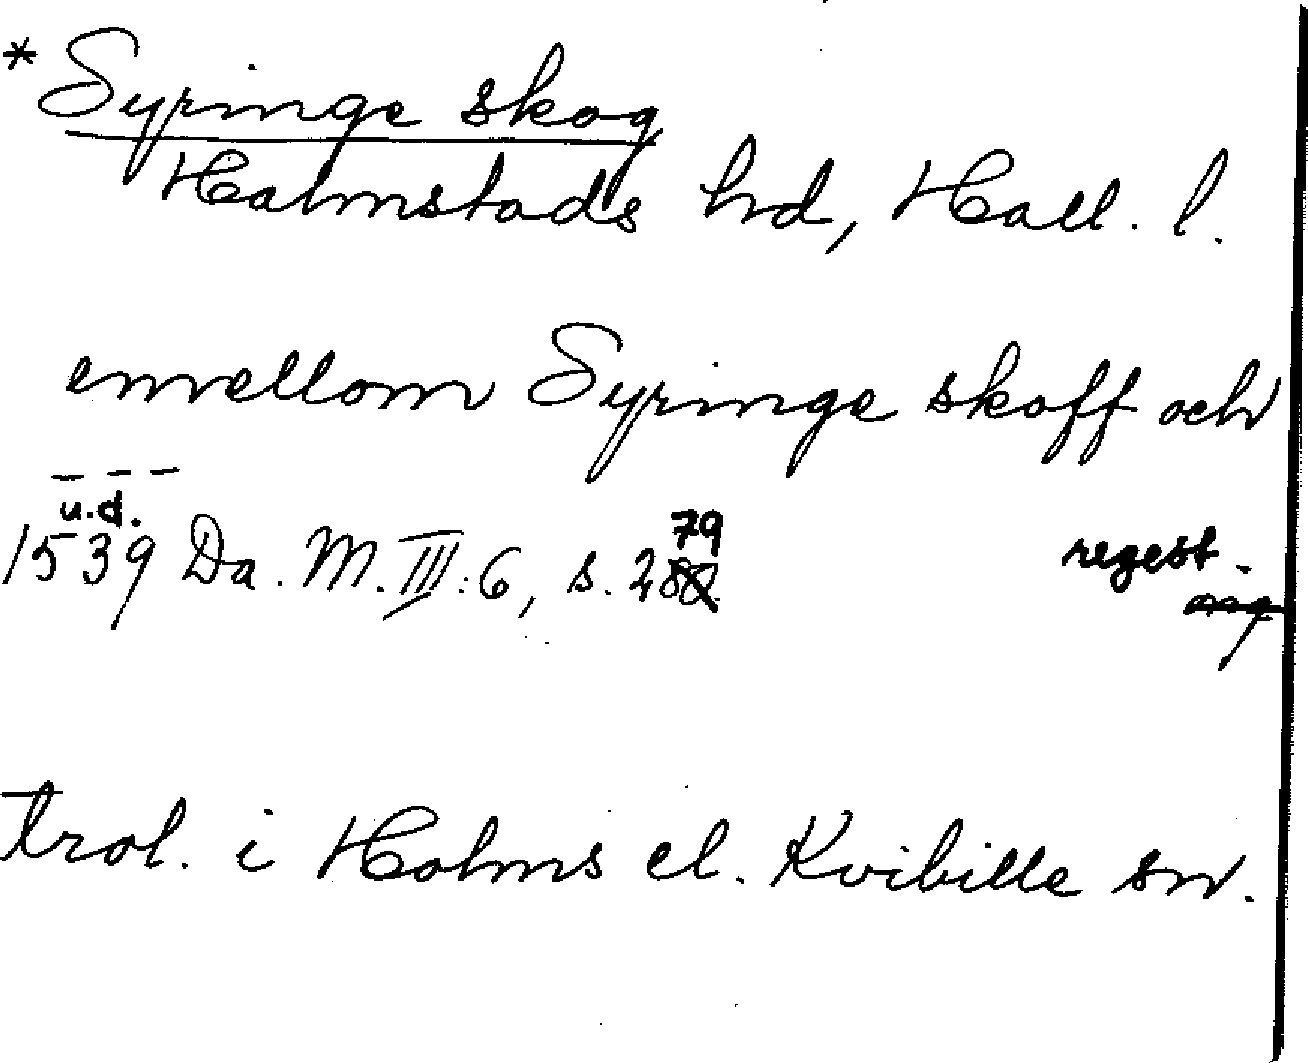 * Syringe skog
Halmstads hd, Hall. l.
emellom Syringe skoff och
- - -
u.d.
1539 Da. M. III: 6, s. 279 regest.
trol. i Holms el. Kvibille sn.